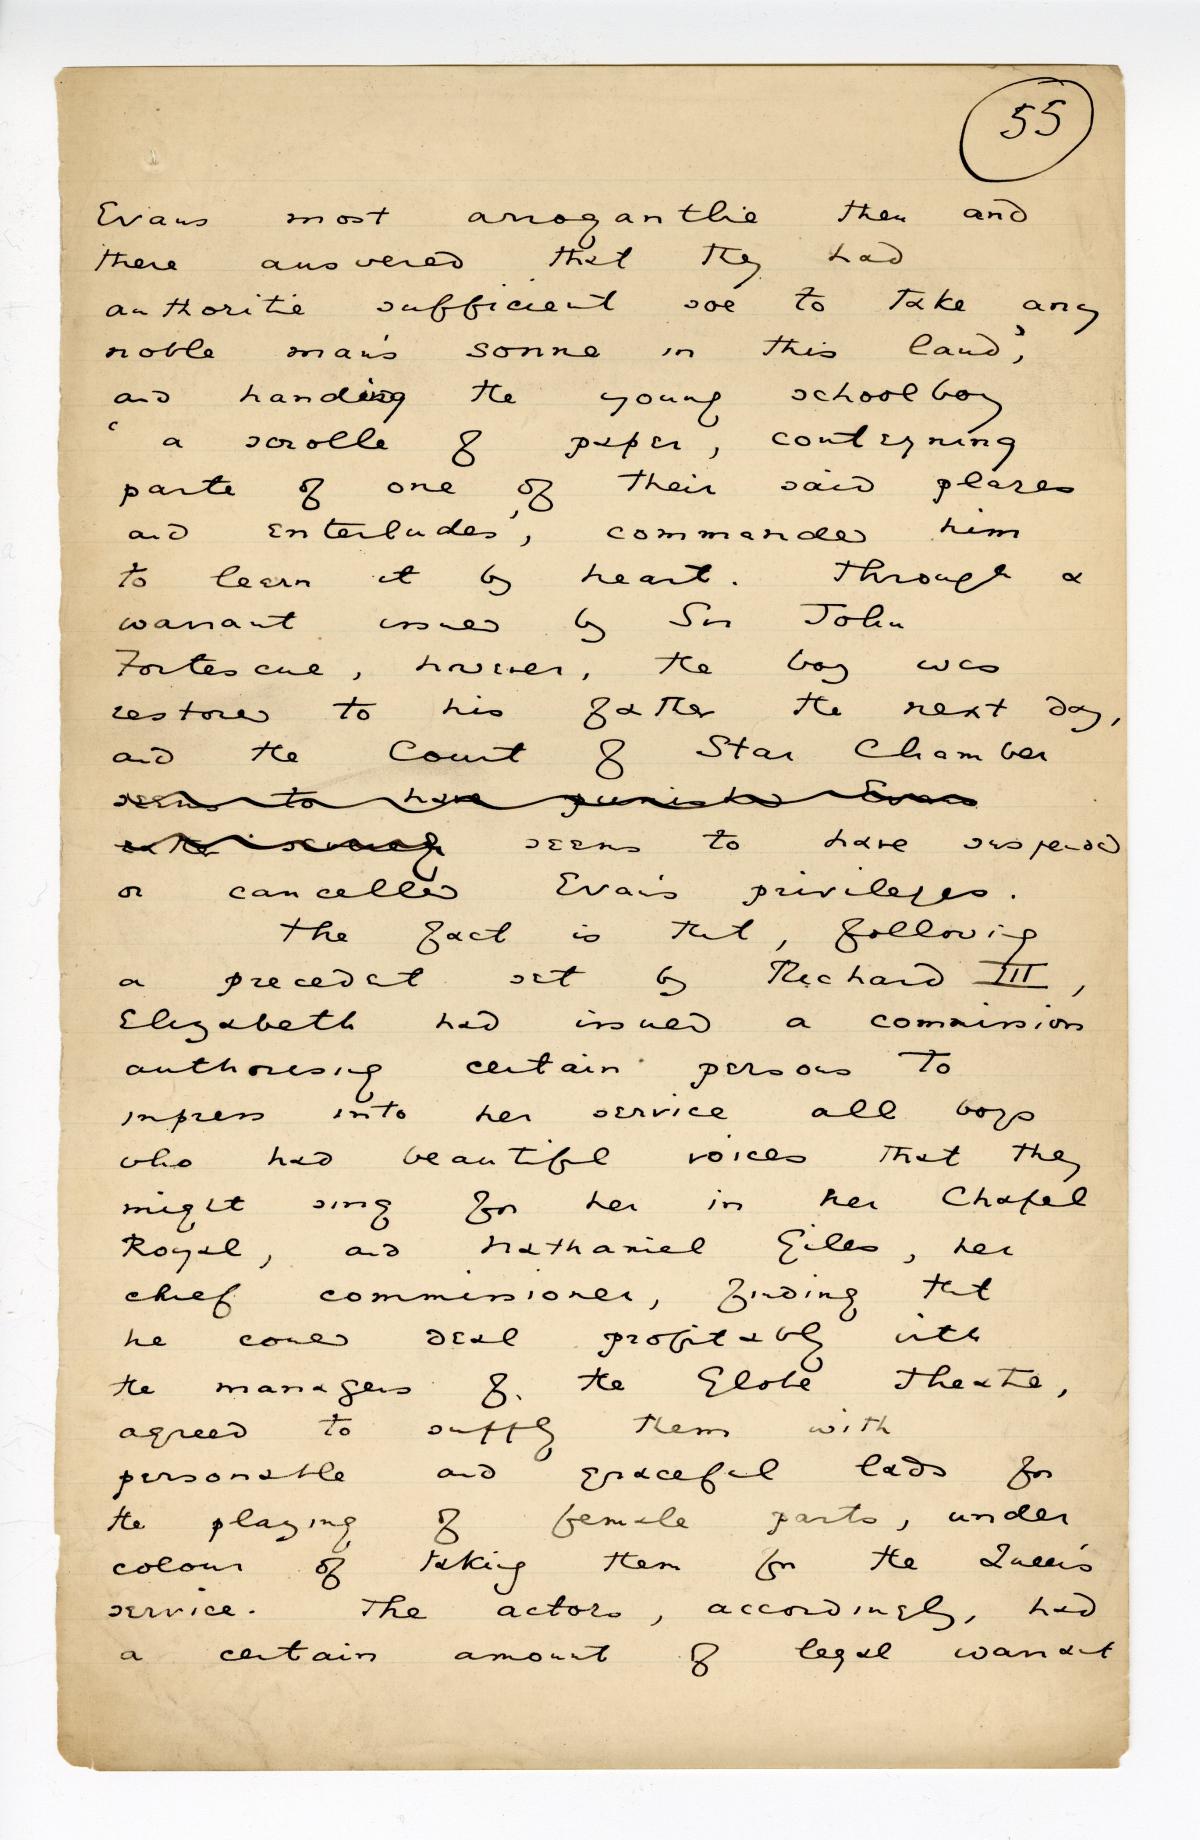 55
Evans most arrogantlie then and
there answered that they had
authoritie sufficient soe to take any
noble man's sonne in this land',
and handing the young schoolboy
'a scrolle of paper, conteyning
parte of one of their said playes
and enterludes', commanded him
to learn it by heart. Through a
warrant issued by Sir John
Fortescue, however, the boy was
restored to his father the next day,
and the Court of Star Chamber
seems to have punished Evans
seems to have suspended
or cancelled Evans privileges.
The fact is that, following
a precedent set by Richard III,
Elizabeth had issued a commission
authorising certain persons to
impress into her service all boys
who had beautiful voices that they
might sing for her in her Chapel
Royal, and Nathaniel Giles, her
chief commissioner, finding that
he could deal profitably with
the managers of the Globe Theatre,
agreed to supply them with
personable and graceful lads for
the playing of female parts, under
colour of taking them for the Queen's
service. The actors, accordingly, had
a certain amount of legal warrant